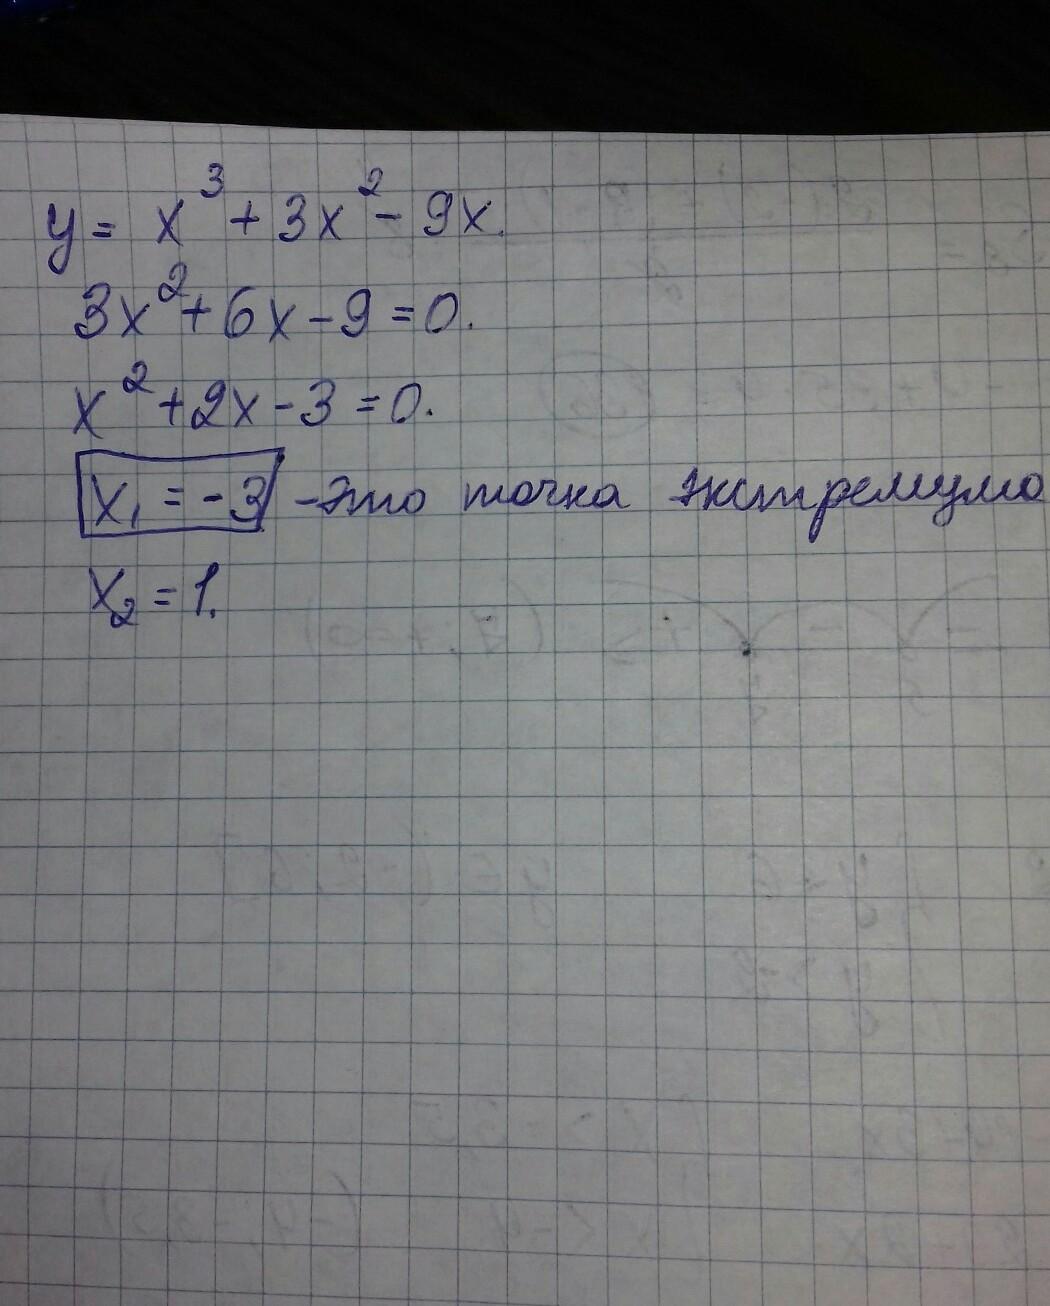 y = x³ + 3x² - 9x.
3x² + 6x - 9 = 0.
x² + 2x - 3 = 0.
x₁ = -3 - это точка экстремума
x₂ = 1.